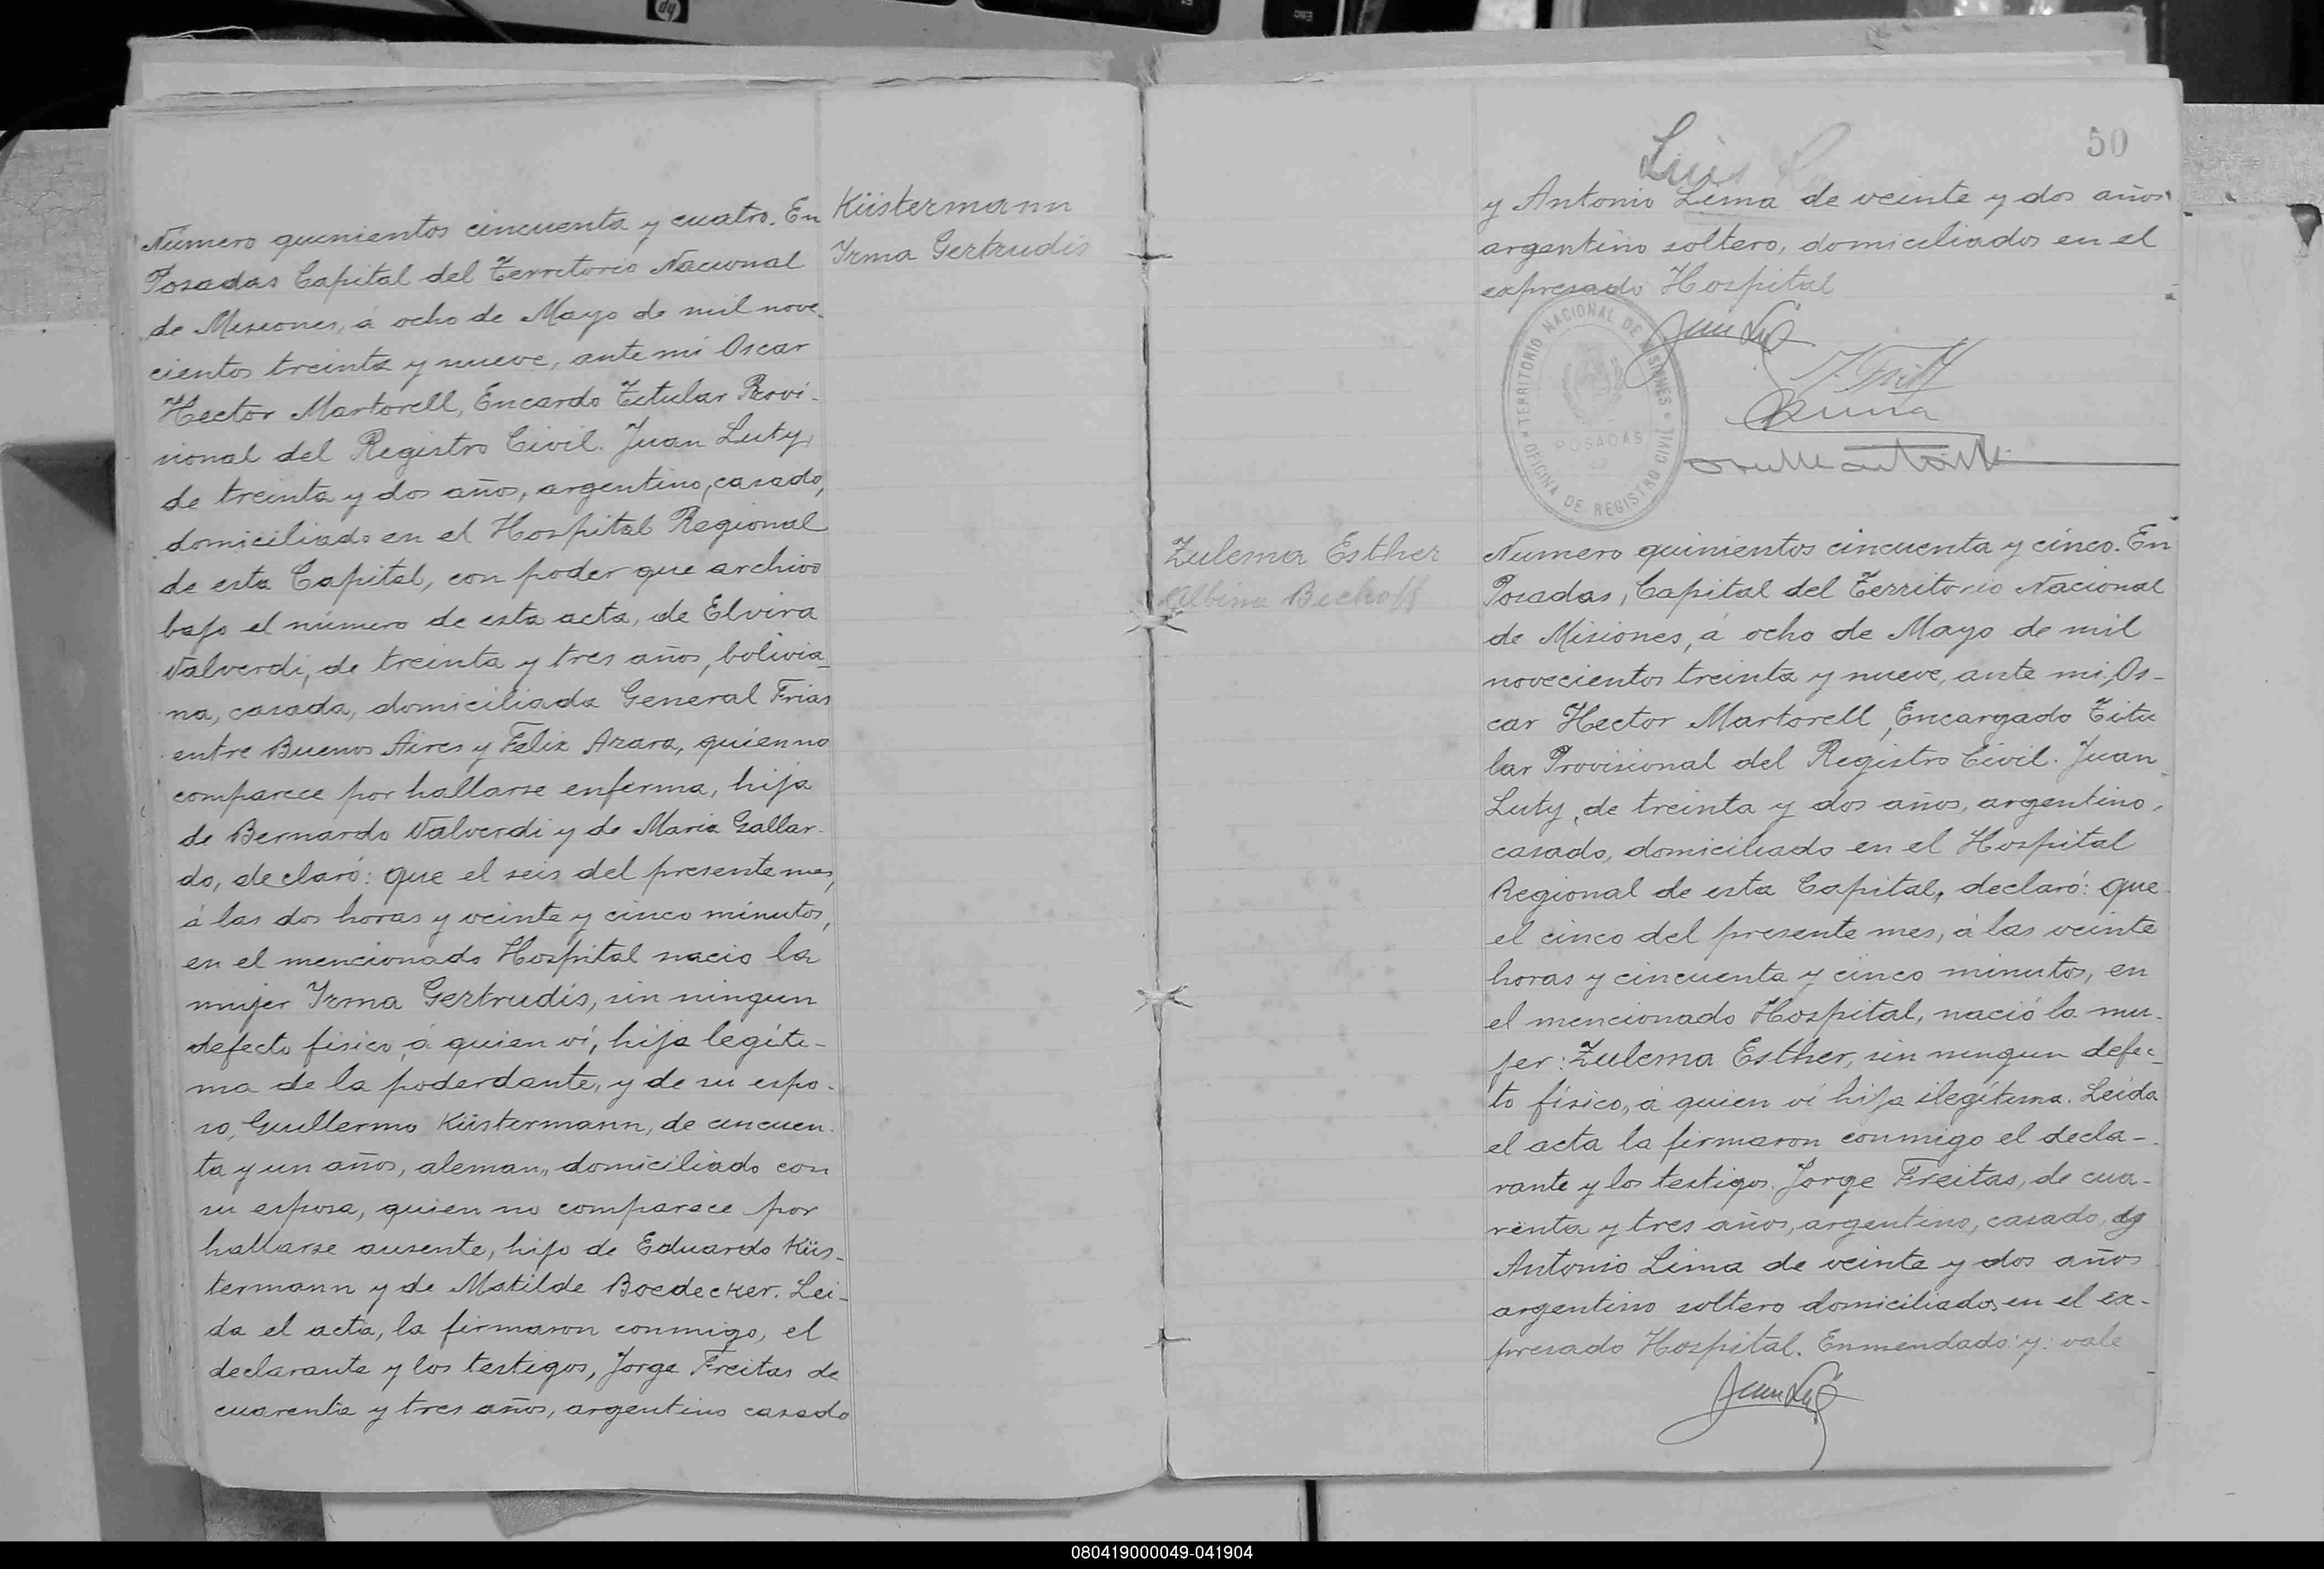 Küstermann
Yrma Gertrudis
Número quinientos cincuenta y cuatro. En
Posadas Capital del Territorio Nacional
de Misiones, á ocho de Mayo de mil nove-
cientos treinta y nueve, ante mi Oscar
Hector Martorell, Encardo Titular Provi-
sional del Registro Civil. Juan Luty,
de treinta y dos años, argentino, casado,
domiciliado en el Hospital Regional
de esta Capital, con poder que archivo
bajo el número de esta acta, de Elvira
Valverdi, de treinta y tres años, bolivia-
na, casada, domiciliada General Frias
entre Buenos Aires y Felix Azara, quien no
comparece por hallarse enferma, hija
de Bernardo Valverdi y de Maria Gallar-
do, declaró: que el seis del presente mes,
á las dos horas y veinte y cinco minutos,
en el mencionado Hospital nacio la
mujer Yrma Gertrudis, sin ningun
defecto fisico, á quien ví, hija legíti-
ma de la poderdante, y de su espo-
so, Guillermo Küstermann, de cincuen-
ta y un años, aleman, domiciliado con
su esposa, quien no comparece por
hallarse ausente, hijo de Eduardo Küs-
termann y de Matilde Boedecker. Lei-
da el acta, la firmaron conmigo, el
declarante y los testigos, Jorge Freitas de
cuarenta y tres años, argentino casado
50
Luis
y Antonio Lima de veinte y dos años
argentino soltero, domiciliados en el
expresado Hospital
TERRITORIO NACIONAL DE MISIONES
POSADAS
OFICINA DE REGISTRO CIVIL
Zulema Esther
Albina Bechoff
Numero quinientos cincuenta y cinco. En
Posadas, Capital del Territorio Nacional
de Misiones, á ocho de Mayo de mil
novecientos treinta y nueve, ante mi, Os-
car Hector Martorell, Encargado Titu
lar Provisional del Registro Civil. Juan
Luty, de treinta y dos años, argentino,
casado, domiciliado en el Hospital
Regional de esta Capital, declaró: que
el cinco del presente mes, á las veinte
horas y cincuenta y cinco minutos, en
el mencionado Hospital, nació la mu-
jer: Zulema Esther, sin ningun defec-
to físico, á quien ví hija ilegítima. Leida
el acta la firmaron conmigo el decla-
rante y los testigos. Jorge Freitas, de cua-
renta y tres años, argentino, casado, y
Antonio Lima de veinte y dos años
argentino soltero domiciliados en el ex-
presado Hospital. Enmendado: y: vale
080419000049-041904